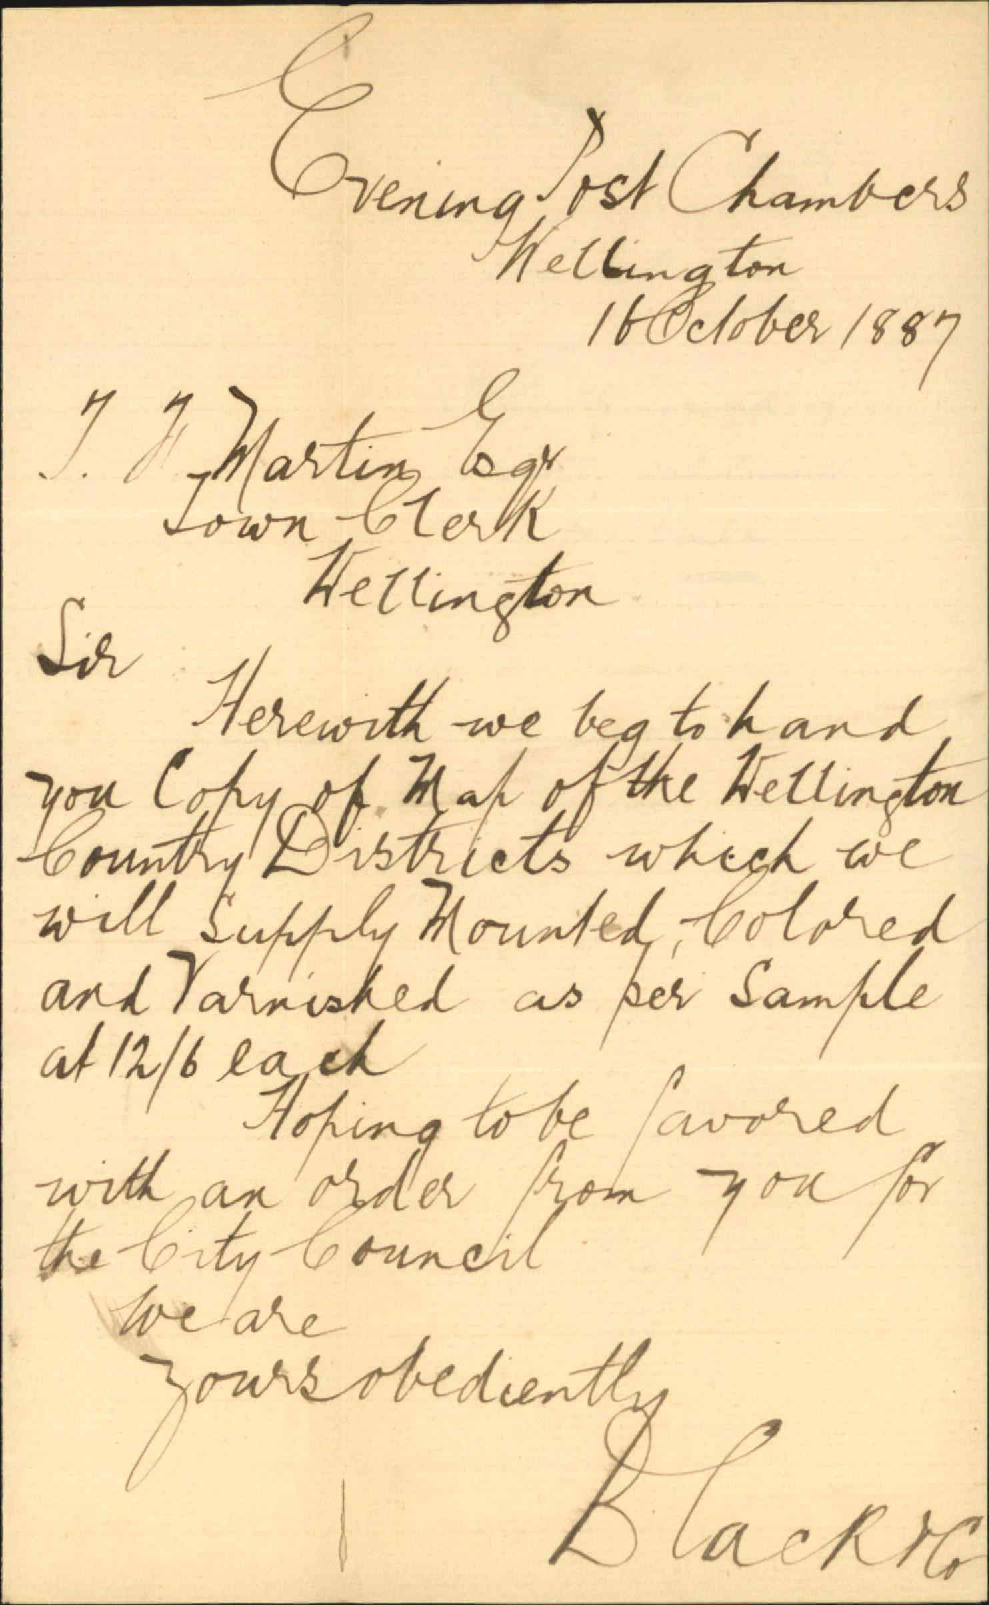 Evening Post Chambers
Wellington
18 October 1887
T. F. Martin Esqr
Town Clerk
Wellington
Sir
Herewith we beg to hand
you Copy of Map of the Wellington
Country Districts which we
will Supply Mounted, Colored
and Varnished as per Sample
at 12/6 each
Hoping to be favored
with an order from you for
the City Council
We are
Yours obediently
Black & Co